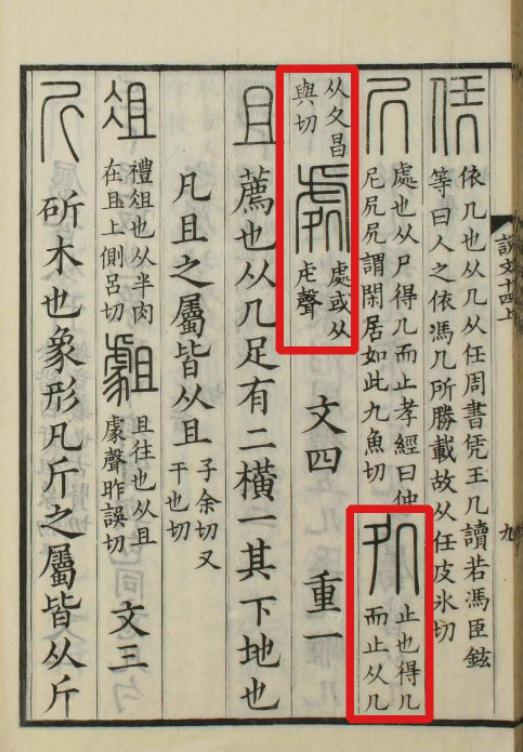 說文十四上
九
凭 依几也从几从任周書凭玉几讀若馮臣鉉
等曰人之依馮几所勝載故从任皮氷切
凥 處也从尸得几而止孝經曰仲
尼凥凥謂閑居如此九魚切
処 止也得几
而止从几
从夂昌
與切
處 處或从
虍聲
文四
重一
且 薦也从几足有二橫一其下地也
凡且之屬皆从且
子余切又
千也切
俎 禮俎也从半肉
在且上側呂切
䣅 且往也从且
豦聲昨誤切
文三
斤 斫木也象形凡斤之屬皆从斤